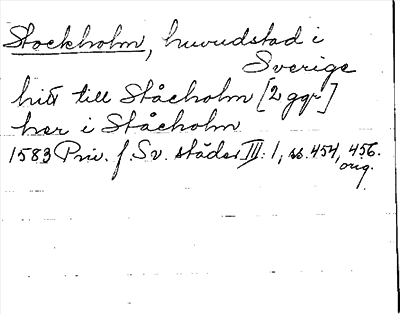 Stockholm, huvudstad i
Sverige
hit till Ståcholm [2 ggr]
her i Ståcholm
1583 Priv. f. Sv. städer III: 1, ss. 454, 456.
orig.